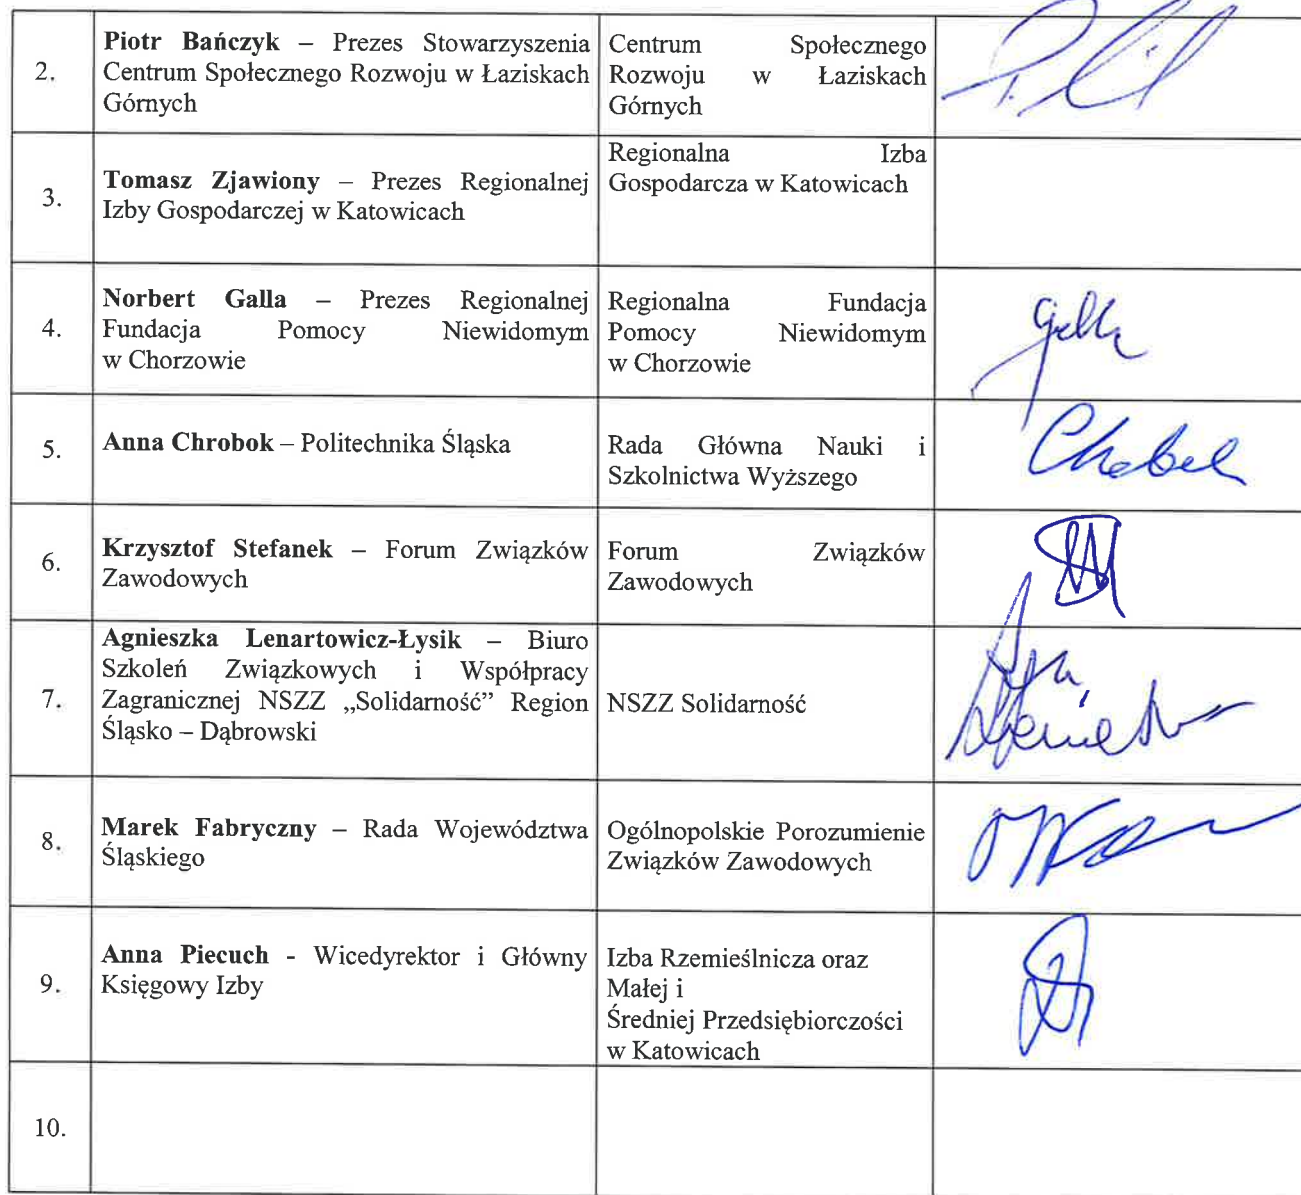 2.
Piotr Bańczyk – Prezes Stowarzyszenia
Centrum Społecznego Rozwoju w Łaziskach
Górnych
Centrum Społecznego
Rozwoju w Łaziskach
Górnych
3.
Tomasz Zjawiony – Prezes Regionalnej
Izby Gospodarczej w Katowicach
Regionalna Izba
Gospodarcza w Katowicach
4.
Norbert Galla – Prezes Regionalnej
Fundacja Pomocy Niewidomym
w Chorzowie
Regionalna Fundacja
Pomocy Niewidomym
w Chorzowie
5.
Anna Chrobok – Politechnika Śląska
Rada Główna Nauki i
Szkolnictwa Wyższego
6.
Krzysztof Stefanek – Forum Związków
Zawodowych
Forum Związków
Zawodowych
7.
Agnieszka Lenartowicz-Łysik – Biuro
Szkoleń Związkowych i Współpracy
Zagranicznej NSZZ „Solidarność” Region
Śląsko – Dąbrowski
NSZZ Solidarność
8.
Marek Fabryczny – Rada Województwa
Śląskiego
Ogólnopolskie Porozumienie
Związków Zawodowych
9.
Anna Piecuch - Wicedyrektor i Główny
Księgowy Izby
Izba Rzemieślnicza oraz
Małej i
Średniej Przedsiębiorczości
w Katowicach
10.